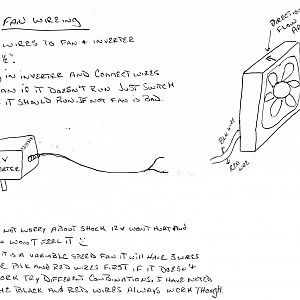 FAN WIRING
WIRES TO FAN + INVERTER
IN INVERTER AND CONNECT WIRES
AN IF IT DOESN'T RUN JUST SWITCH
IT SHOULD RUN. IF NOT FAN IS BAD.
DIRECTION
FLOW
AR
BLK WIRE
RED WIRE
V
ERTER
NOT WORRY ABOUT SHOCK 12V WON'T HURT AND
WON'T FEEL IT
IT IS A VARIABLE SPEED FAN IT WILL HAVE 3 WIRES
BLK AND RED WIRES FIRST IF IT DOESN'T
ORK TRY DIFFERENT COMBINATIONS. I HAVE NOTED
HE BLACK AND RED WIRES ALWAYS WORK THOUGH.